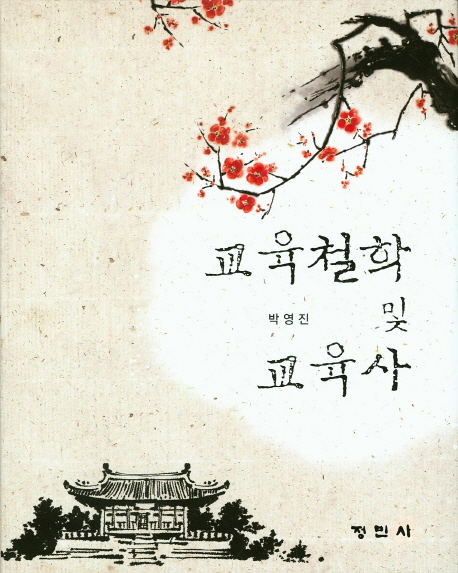 교육철학
및
박영진
교육사
정민사